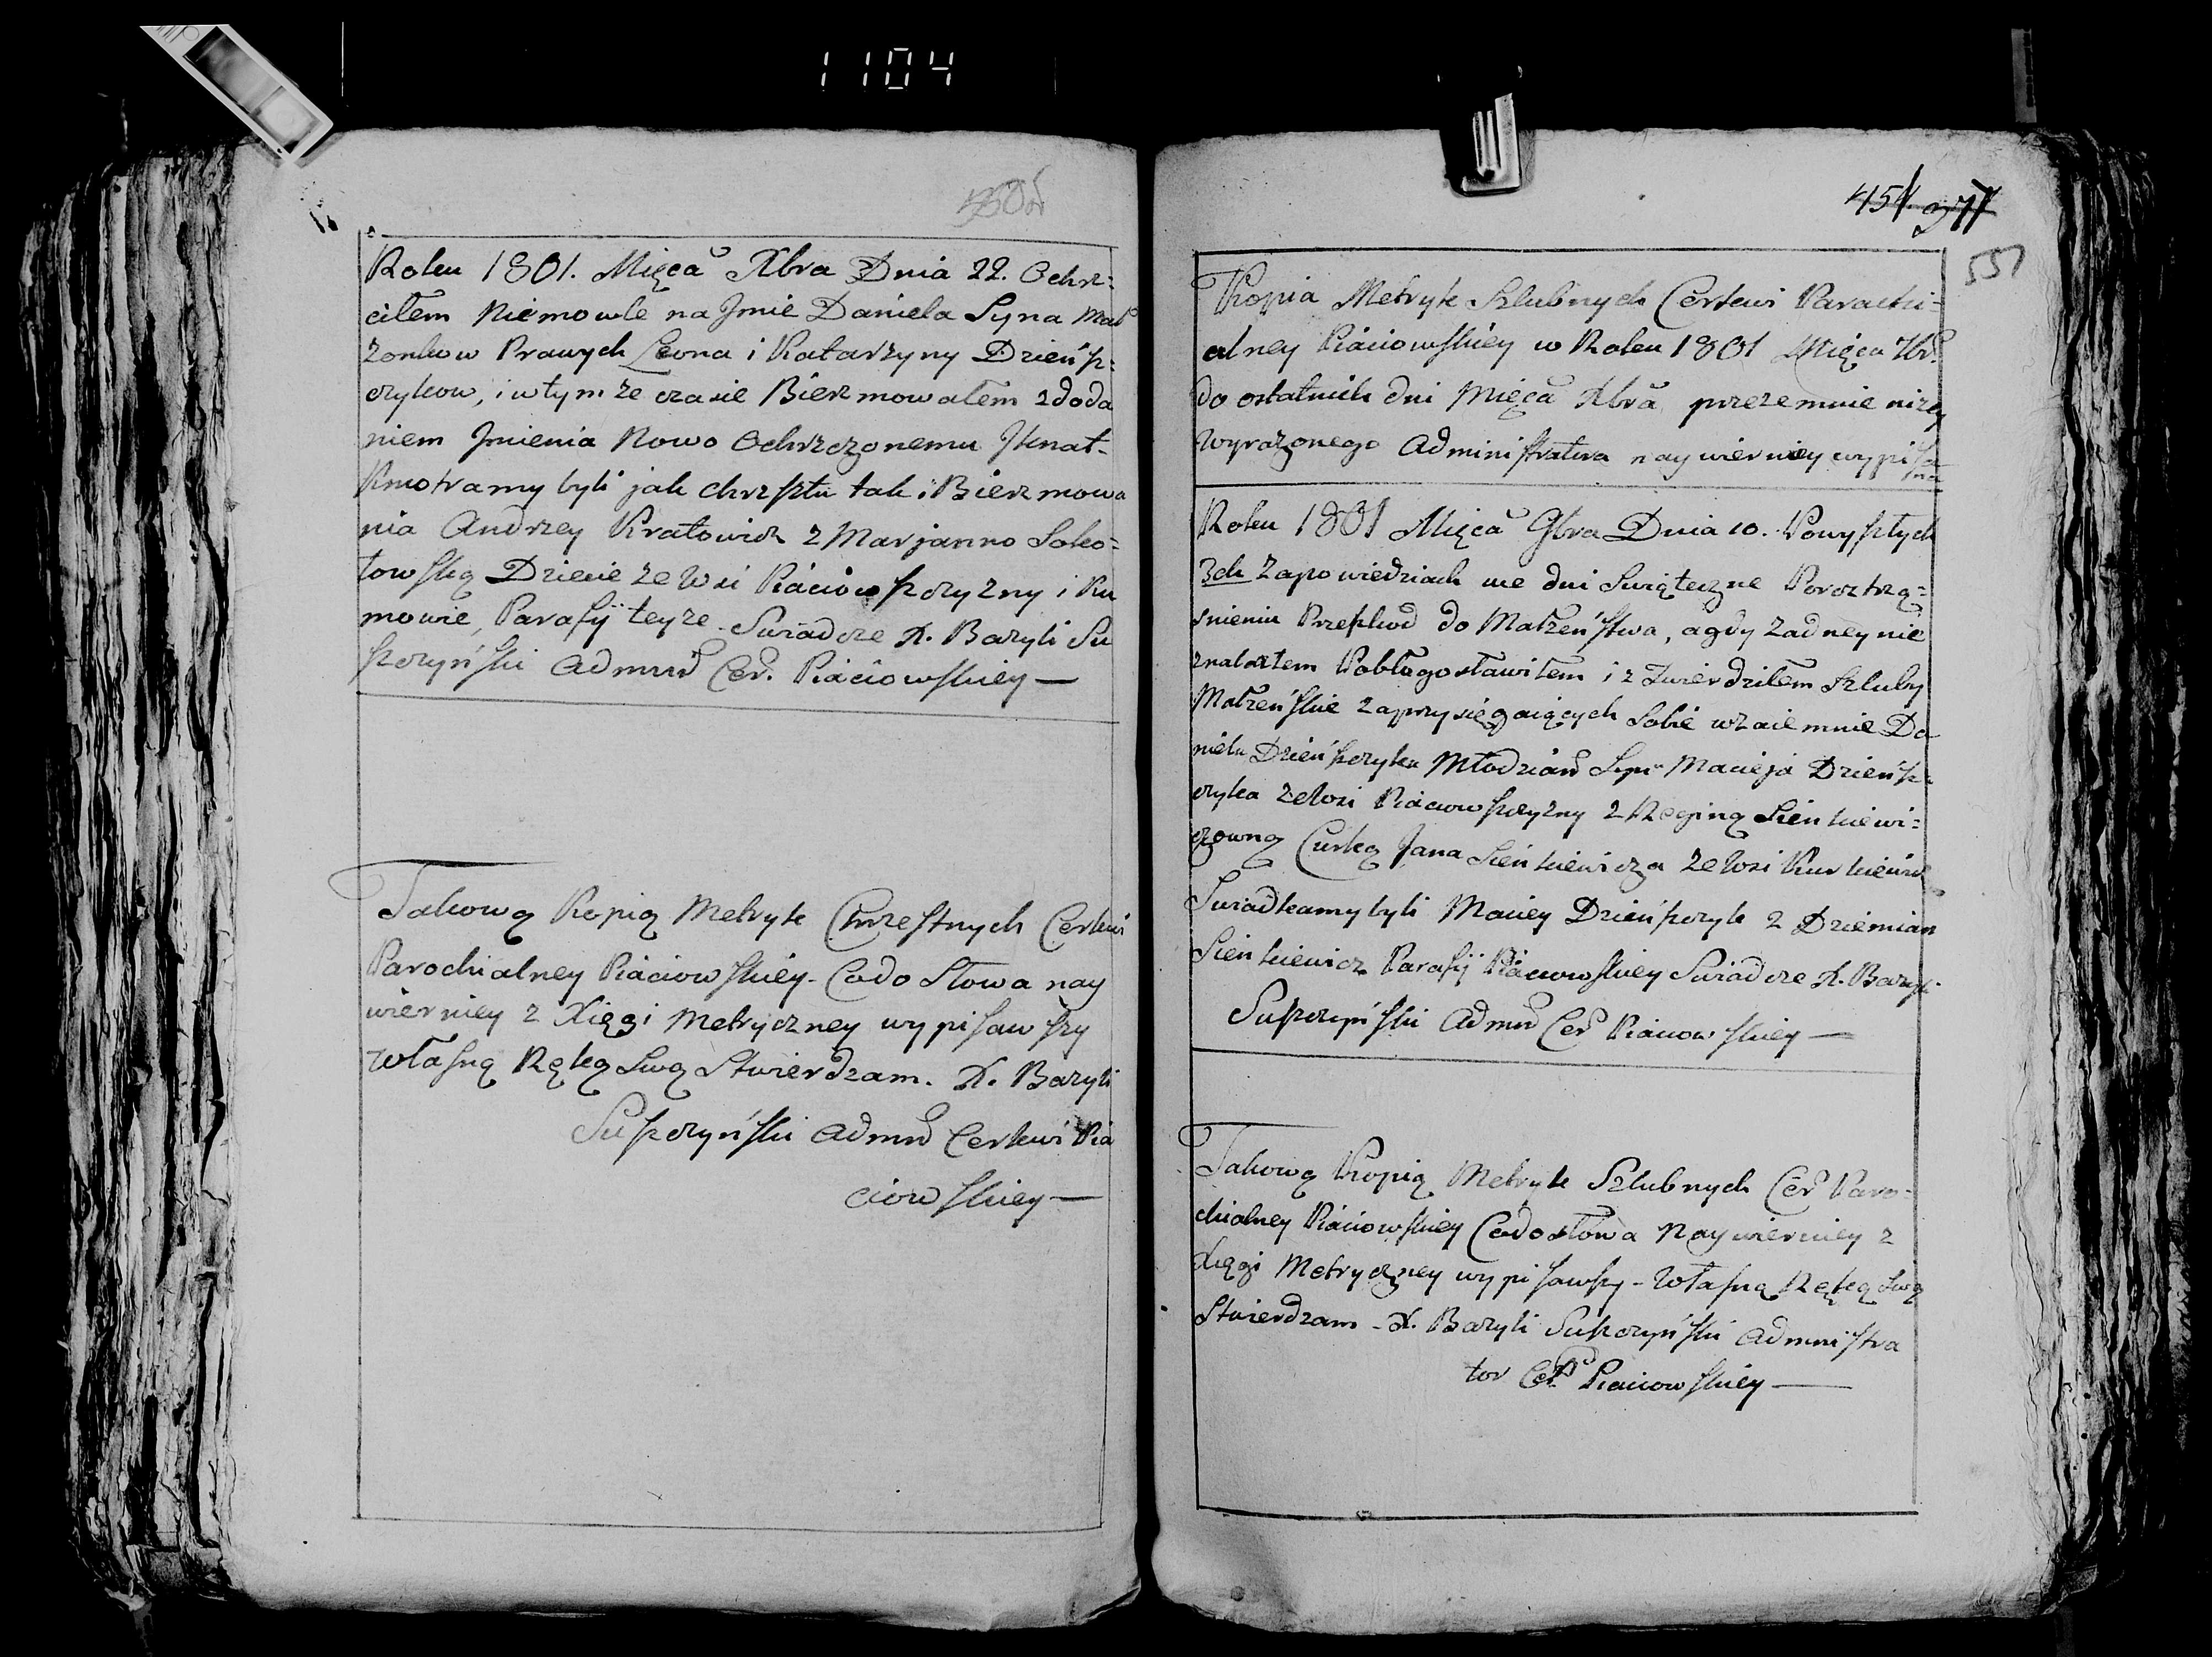 1104
Roku 1801. Mięca Xbra Dnia 22. Ochrz=
ciłem Niemowle na Jmie Daniela Syna Mał
żonkow Prawych Leona i Katarzyny Dzieńsz=
czykow, i w tymże czasie Bierzmowałem z doda
niem Jmienia Nowo Ochrzczonemu Jhnat-
Kmotramy byli jak chrzsztu tak i Bierzmowa
nia Andrzey Kratowicz z Marjanno Soko=
łowską Dziecie ze Wsi Piaciowszczyzny i Ku
mowie, Parafij teyże. Swiadcze X. Bazyli Su
szczyński Admnr Cer. Piaciowskiey —
Takową Kopią Metryk Chrzestnych Cerkwi
Parochialney Piaciowskiey. Co do Słowa nay
wierniey z Xięgi Metryczney wypisawszy
własną Ręką Swą Stwierdzam. X. Bazyli
Suszczyński Admnr Cerkwi Pia
ciowskiey —
454
557
Kopia Metryk Szlubnych Cerkwi Parachi=
alney Piaciowskiey w Roku 1801 Mięca
do ostatnich dni Mięca Xbra przezemnie niżey
wyrażonego Administratora naywierniey wypisa
na
Roku 1801 Mięca 9bra Dnia 10. Powyszłych
3ch Zapowiedziach we dni Swiąteczne Poroztrzą=
snieniu Przeszkod do Małzeństwa, a gdy zadney nie
znalazłem Pobłogosławiłem i z Twierdziłem Szluby
Małzeńskie zaprzysięgaiących Sobie wzaiemnie Da
niela Dzieńszczyka Młodzian Syna Macieja Dzieńsz=
czyka ze Wsi Piaciowszczyzny z Reginą Sienkiewi=
czowną Curką Jana Sienkiewicza ze Wsi
Swiadkamy byli Maciey Dzieńszczyk z Dziemian
Sienkiewicz Parafij Piaciowskiey Swiadcze X. Bazyli
Suszczyński Admnr Cer Piaciowskiey —
Takową Kopią Metryk Szlubnych Cer Paro=
chialney Piaciowskiey Co do słowa Naywierniey z
Xięgi Metryczney wypisawszy - Własną Ręką Swą
Stwierdzam - X. Bazyli Suszczyński Admnistra
tor Cer Piaciowskiey —